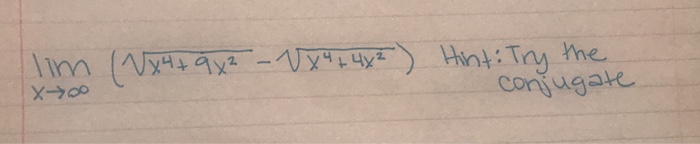 lim (√x⁴+9x² - √x⁴+4x²) Hint: Try the
x→∞ conjugate